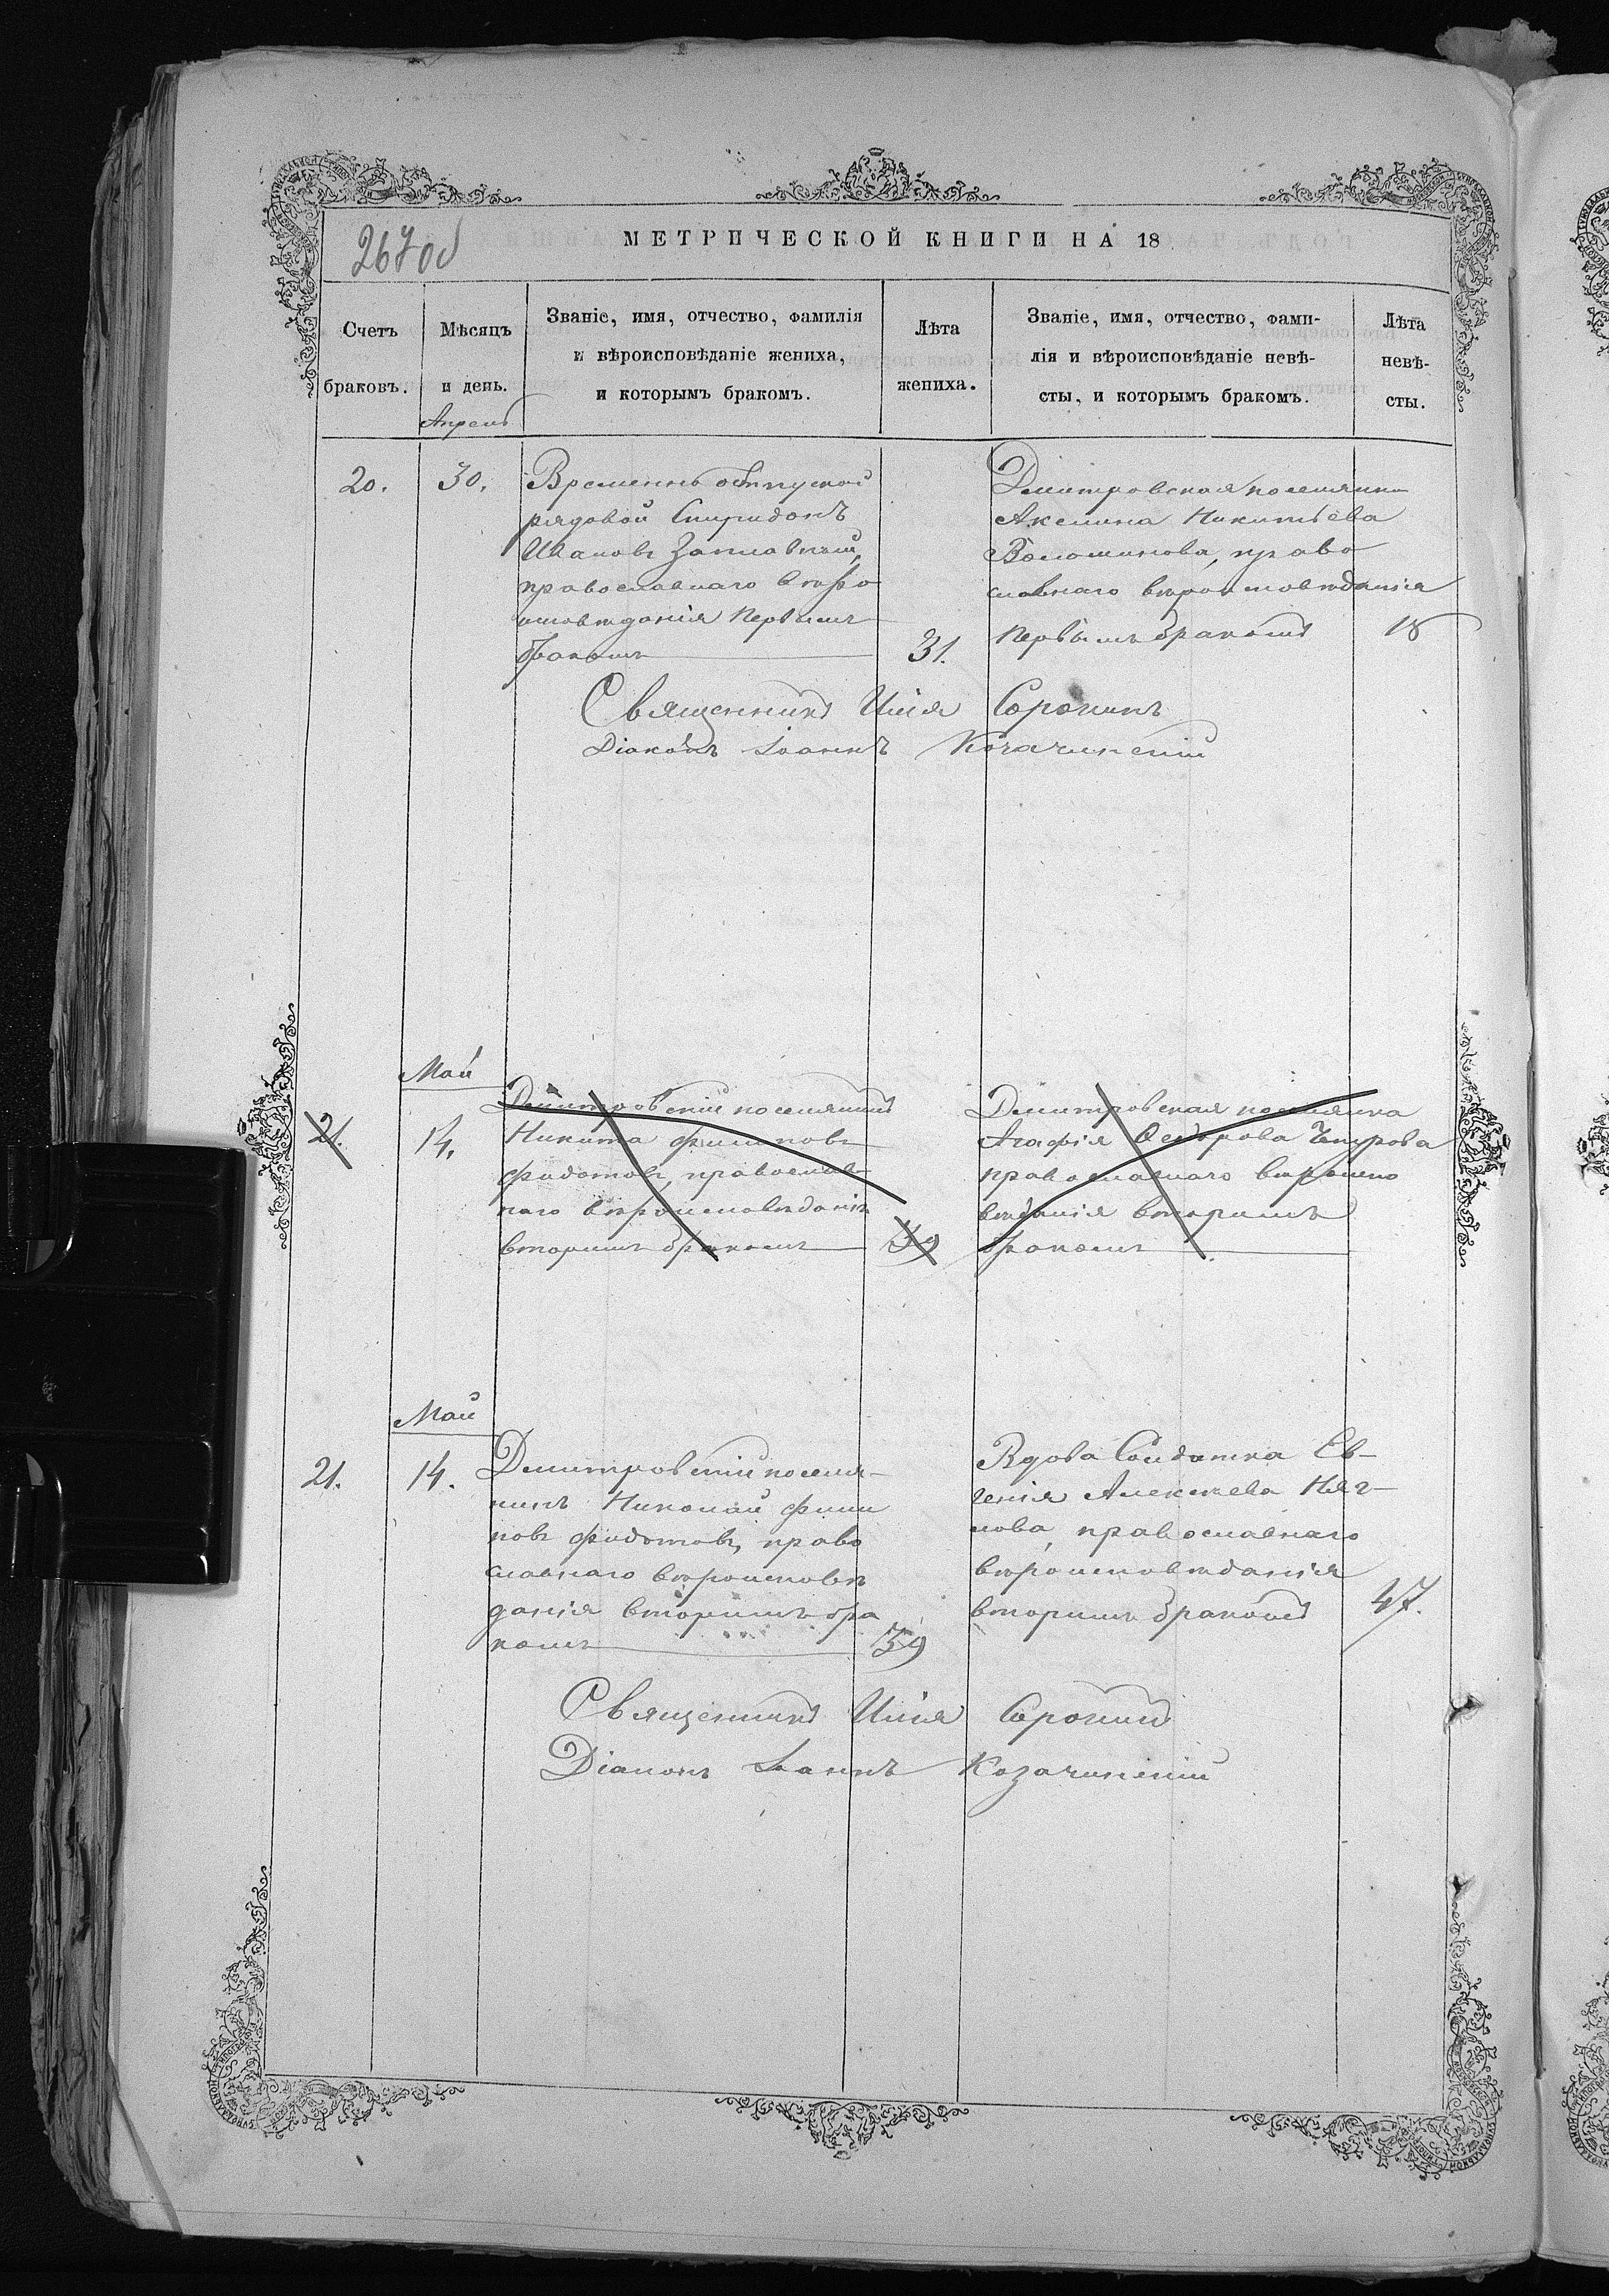 267об
МЕТРИЧЕСКОЙ КНИГИ НА 18
Счетъ
браковъ.
Мѣсяцъ
и день.
Званіе, имя, отчество, фамилія
и вѣроисповѣданіе жениха,
и которымъ бракомъ.
Лѣта
жениха.
Званіе, имя, отчество, фами-
лія и вѣроисповѣданіе невѣ-
сты, и которымъ бракомъ.
Лѣта
невѣ-
сты.
Апрель
20.
30.
Временно отпускной
рядовой Спиридонъ
Ивановъ
православнаго вѣро
исповѣданія первымъ
бракомъ
31.
Димитровская поселянка
Акелина Никитѣева
Воломинова, право
славнаго вѣроисповѣданія
первымъ бракомъ
18
Священникъ Илія Сорокинъ
Діаконъ Іоаннъ Козачинскій
Май
21.
14.
Димитровскій поселянинъ
Никита Филиповъ
Федотовъ, православ
наго вѣроисповѣданія
вторымъ бракомъ
39
Димитровская поселянка
Агафія Ѳедорова Чепурова
православнаго вѣроиспо
вѣданія вторымъ
бракомъ
Май
21.
14.
Димитровскій поселя-
нинъ Николай Фили
повъ Федотовъ, право
славнаго вѣроисповѣ
данія вторымъ бра
комъ
39
Вдова Солдатка Ев-
генія Алексѣева
православнаго
вѣроисповѣданія
вторымъ бракомъ
47.
Священникъ Илія Сорокинъ
Діаконъ Іоаннъ Козачинскій